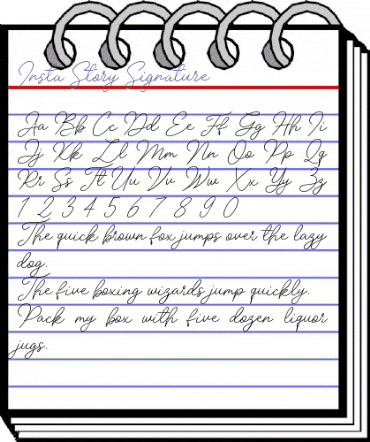 Insta Story Signature
Aa Bb Cc Dd Ee Ff Gg Hh Ii
Jj Kk Ll Mm Nn Oo Pp Qq
Rr Ss Tt Uu Vv Ww Xx Yy Zz
1 2 3 4 5 6 7 8 9 0
The quick brown fox jumps over the lazy
dog.
The five boxing wizards jump quickly
Pack my box with five dozen liquor
jugs.